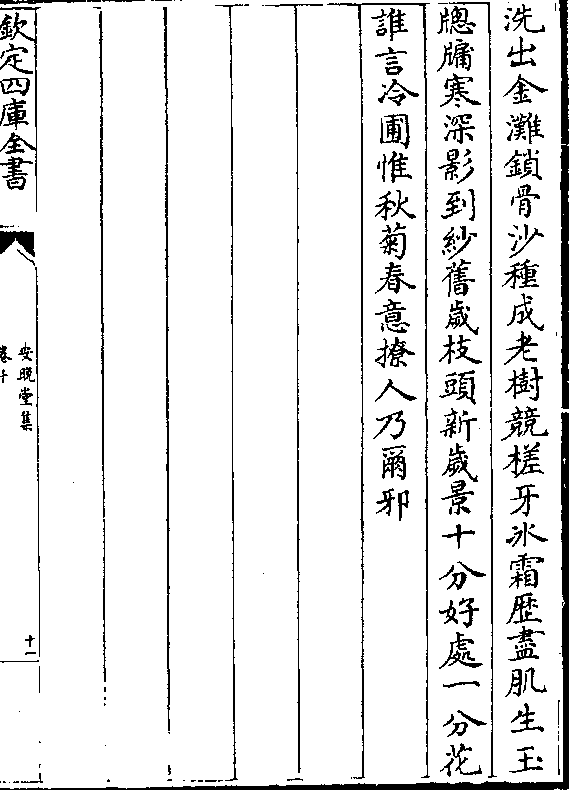 洗出金灘鎖骨沙種成老樹競槎牙氷霜歴盡肌生玉
牕牗寒深影到紗舊歲枝頭新歲景十分好處一分花
誰言冷圃惟秋菊春意撩人乃爾邪
欽定四庫全書
安晚堂集
卷十
十一